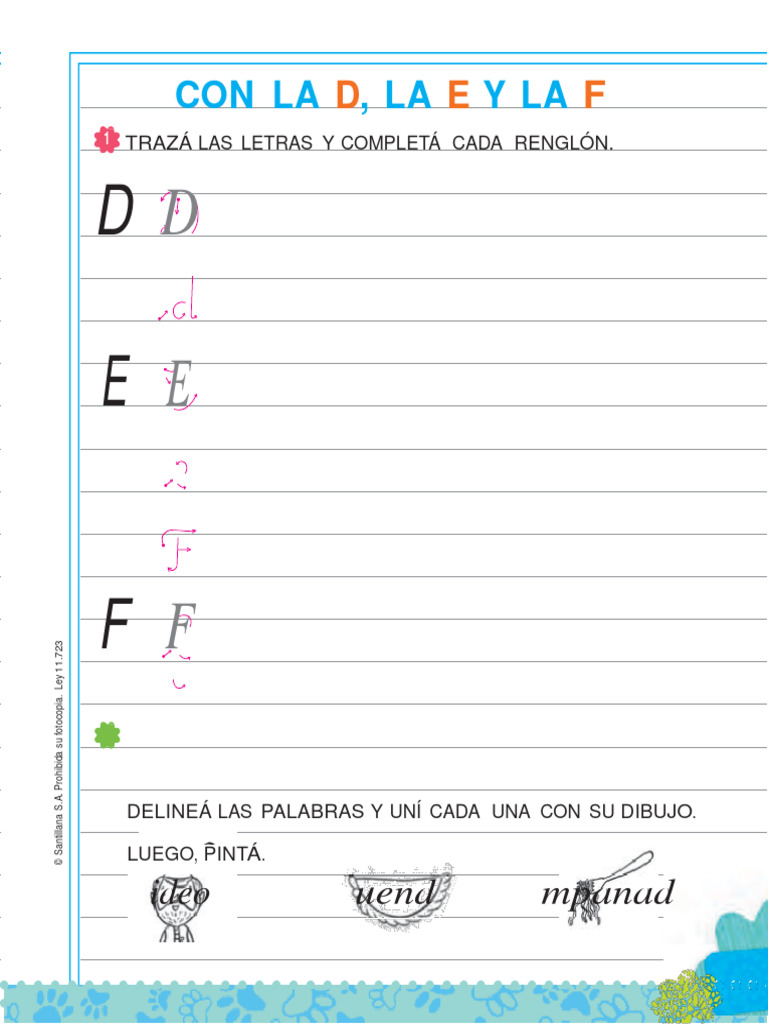 CON LA D, LA E Y LA F
1 TRAZÁ LAS LETRAS Y COMPLETÁ CADA RENGLÓN.
D D
d
E E
F
F F
DELINEÁ LAS PALABRAS Y UNÍ CADA UNA CON SU DIBUJO.
LUEGO, PINTÁ.
ideo uend mpanad
© Santillana S.A. Prohibida su fotocopia. Ley 11.723